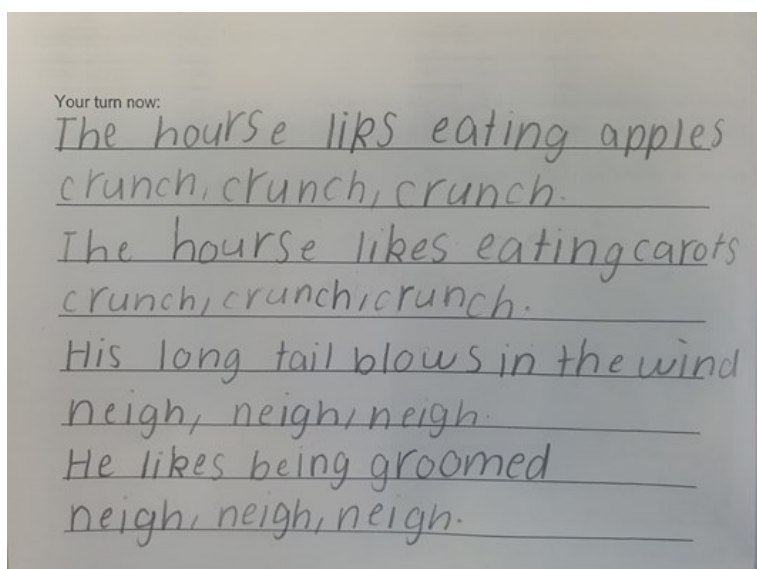 Your turn now:
The hourse liks eating apples
crunch, crunch, crunch.
The hourse likes eating carots
crunch, crunch, crunch.
His long tail blows in the wind
neigh, neigh, neigh.
He likes being groomed
neigh, neigh, neigh.